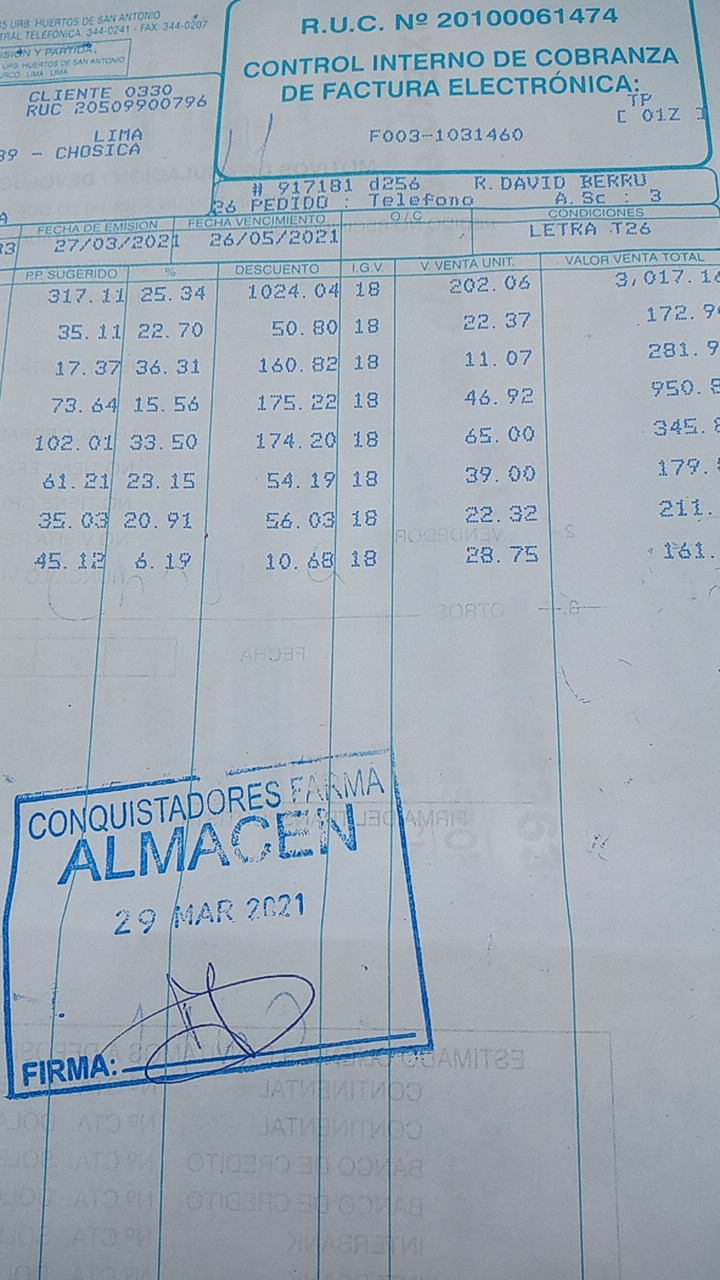 URB. HUERTOS DE SAN ANTONIO
TELEFÓNICA. 344-0241 - FAX: 344-0207
Y PARTIDA,
URB. HUERTOS DE SAN ANTONIO
LIMA - LIMA
CLIENTE 0330
RUC 20509900796
LIMA
39 - CHOSICA
R.U.C. Nº 20100061474
CONTROL INTERNO DE COBRANZA
DE FACTURA ELECTRÓNICA:
TP
[ 01Z ]
F003-1031460
# 917181 d256 R.DAVID BERRU
26 PEDIDO : Telefono A.Sc : 3
FECHA DE EMISION FECHA VENCIMIENTO O / C CONDICIONES
27/03/2021 26/05/2021 LETRA T26
P.P. SUGERIDO % DESCUENTO I.G.V. V. VENTA UNIT. VALOR VENTA TOTAL
317.11 25.34 1024.04 18 202.06 3,017.1
35.11 22.70 50.80 18 22.37 172.9
17.37 36.31 160.82 18 11.07 281.9
73.64 15.56 175.22 18 46.92 950.8
102.01 33.50 174.20 18 65.00 345.8
61.21 23.15 54.19 18 39.00 179.
35.03 20.91 56.03 18 22.32 211.
45.12 6.19 10.68 18 28.75 161.
CONQUISTADORES FARMA
ALMACEN
29 MAR 2021
FIRMA: